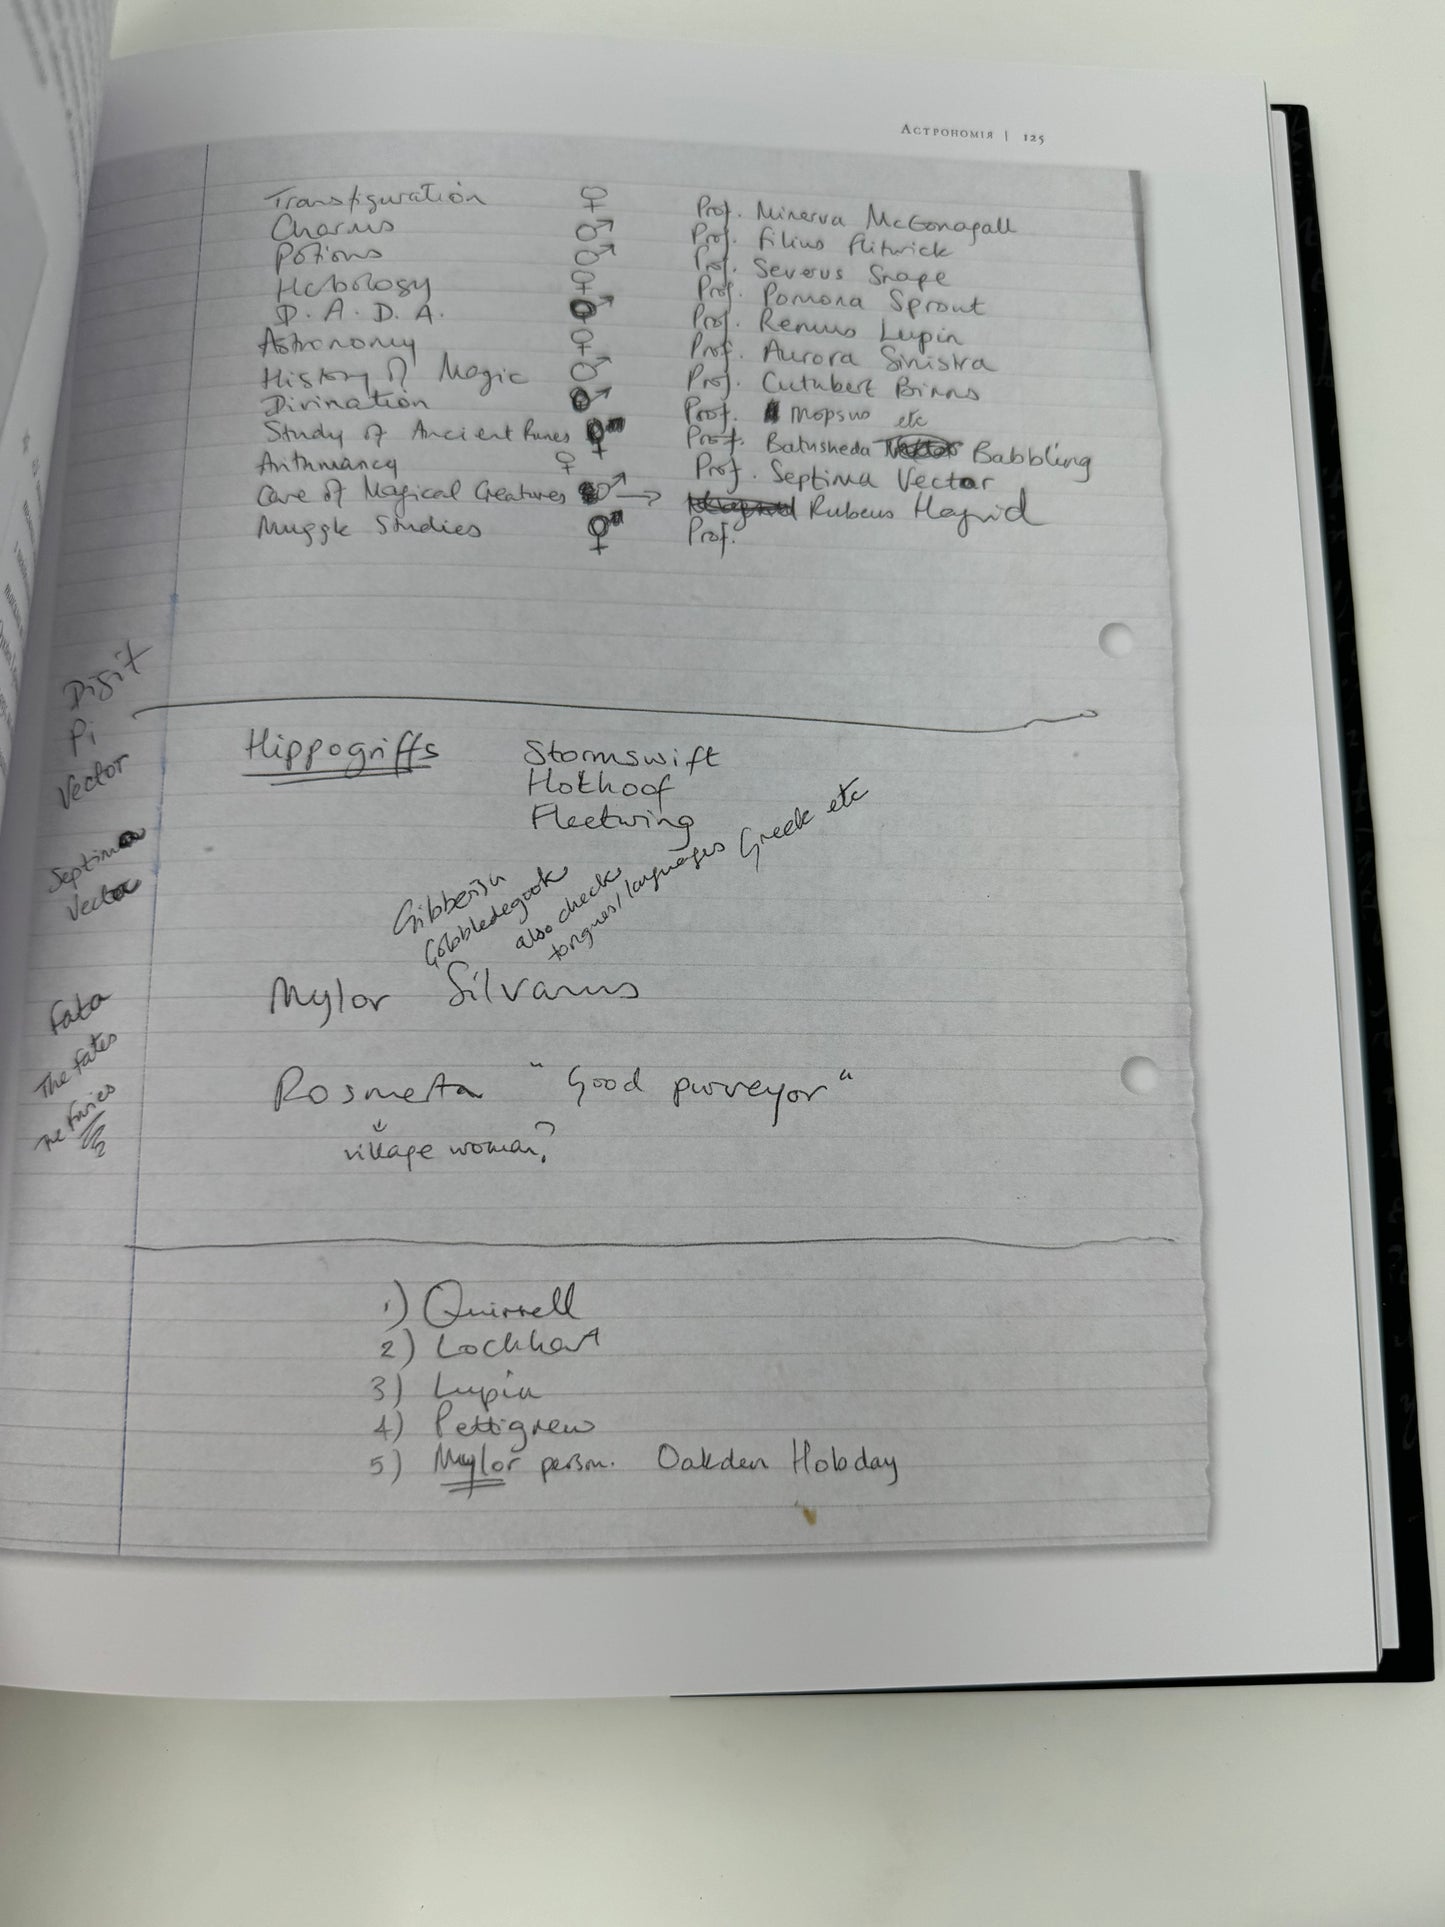 Астрономія | 125
Transfiguration ♀ Prof. Minerva McGonagall
Charms ♂ Prof. Filius Flitwick
Potions ♂ Prof. Severus Snape
Herbology ♀ Prof. Pomona Sprout
D.A.D.A. ♂ Prof. Remus Lupin
Astronomy ♀ Prof. Aurora Sinistra
History of Magic ♂ Prof. Cuthbert Binns
Divination ♂ Prof. Mopsus etc
Study of Ancient Runes ♀ Prof. Bathsheda Vector Babbling
Arithmancy ♀ Prof. Septima Vector
Care of Magical Creatures ♂ → Rubeus Hagrid
Muggle Studies ♀ Prof.
Digit
Pi
Vector
Septima
Vector
Fata
The Fates
The Furies
Hippogriffs
Stormswift
Hothoof
Fleetwing
Gibberish
Gobbledegook
also check
tongues/languages Greek etc
Mylor Silvanus
Rosmerta "Good purveyor"
village woman?
1) Quirrell
2) Lockhart
3) Lupin
4) Pettigrew
5) Mylor person. Oakden Hobday